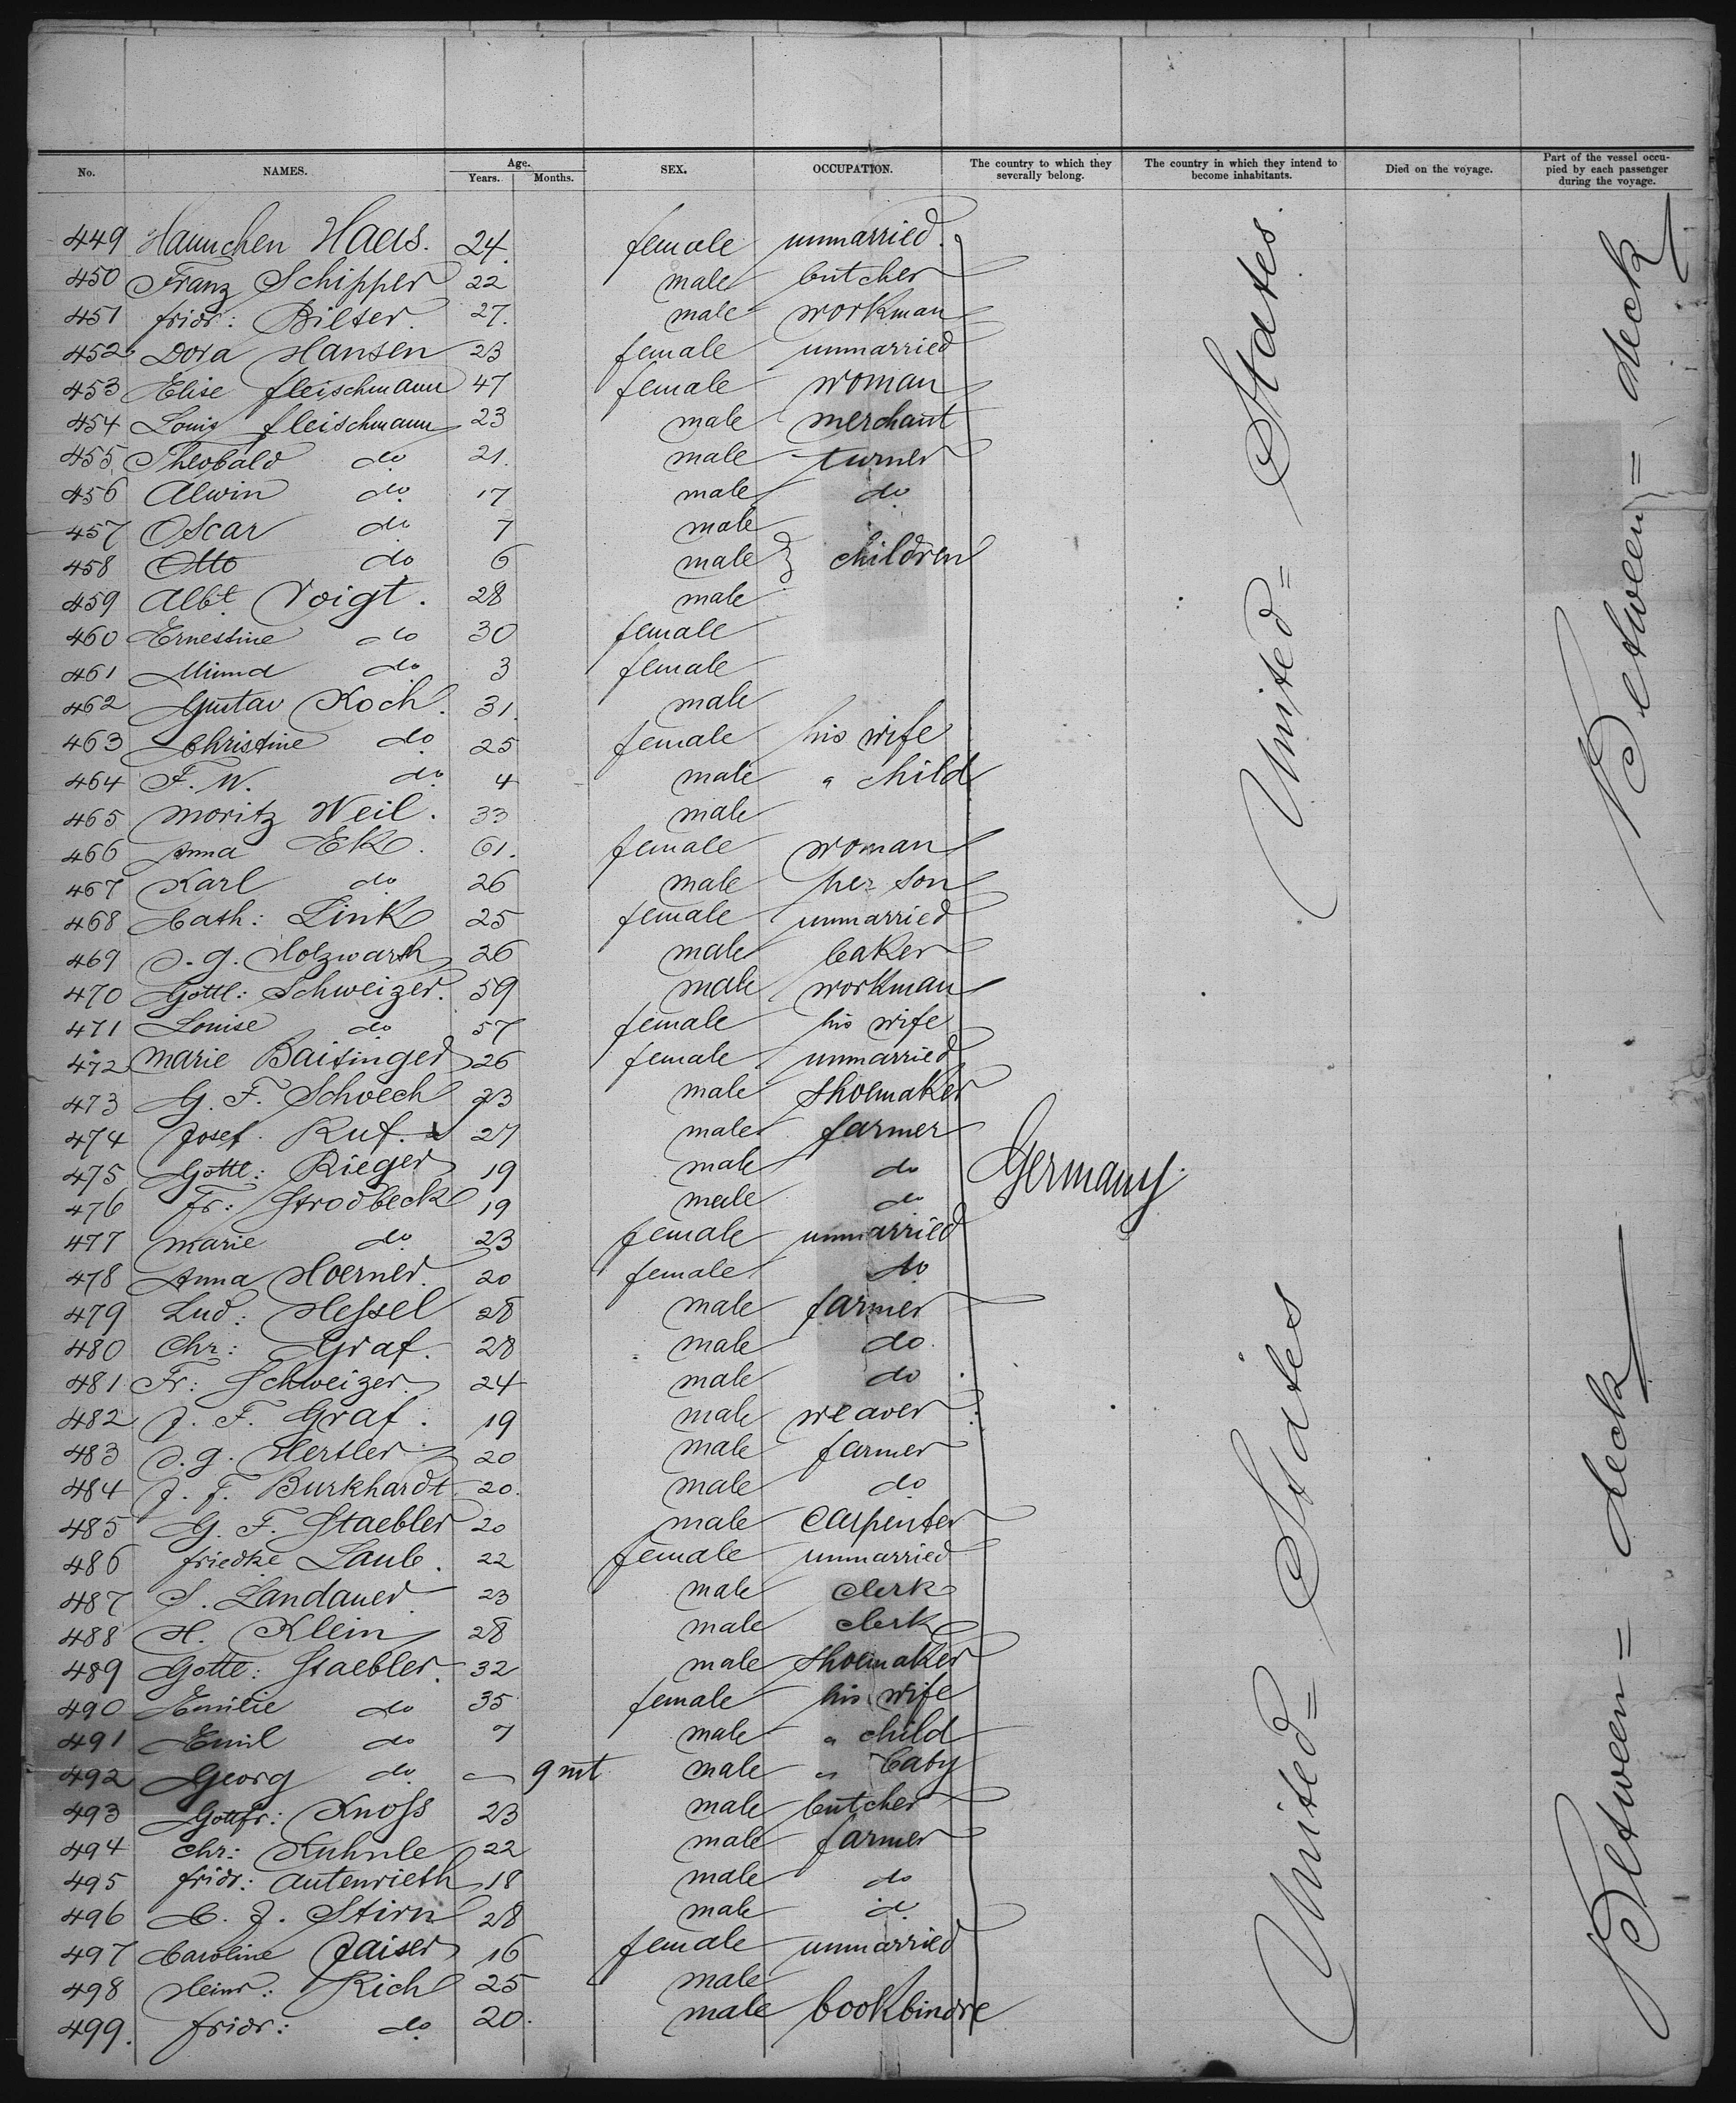 No. NAMES. Age. Years. Months. SEX. OCCUPATION. The country to which they severally belong. The country in which they intend to become inhabitants. Died on the voyage. Part of the vessel occupied by each passenger during the voyage.
449 Hannchen Haas. 24. female unmarried.
450 Franz Schipper 22 male butcher
451 fridr: Bilser. 27. male workman
452 Dora Hansen 23 female unmarried
453 Elise fleischmann 47 female woman
454 Louis fleischmann 23 male merchant
455 Theobald do 21. male turner
456 Alwin do 17 male do
457 Oscar do 7 male
458 Otto do 6 male } children
459 Albt. Voigt. 28 male
460 Ernestine do 30 female
461 Minna do 3 female
462 Gustav Koch. 31. male
463 Christine do 25 female his wife
464 F. W. do 4 male " child
465 Moritz Weil. 33 male
466 Anna Ek. 61. female woman
467 Karl do 26 male her son
468 Cath: Link 25 female unmarried
469 J. G. Holzwarth 26 male baker
470 Gottl: Schweizer. 59 male workman
471 Louise do 57 female his wife
472 Marie Baisinger 26 female unmarried
473 G. F. Schoech 23 male shoemaker
474 Josef Ruf. 27 male farmer
475 Gottl: Rieger 19 male do
Germany.
476 Fr: Strodbeck 19 male do
477 Marie do 23 female unmarried
478 Anna Hoerner. 20 female do
479 Lud: Hessel 28 male farmer
480 Chr: Graf. 28 male do.
481 Fr: Schweizer. 24 male do
482 J. F. Graf. 19 male weaver
483 J. G. Hertler 20 male farmer
484 J. F. Burkhardt. 20. male do
485 G. F. Staebler 20 male carpenter
486 friedke Laub. 22 female unmarried
487 S. Landauer. 23 male clerk
488 H. Klein 28 male clerk
489 Gottl: Staebler. 32 male shoemaker
490 Emilie do 35 female his wife
491 Emil do 7 male " child
492 Georg do — 9 mt male " baby
493 Gottfr: Knoss 23 male butcher
494 Chr: Kuhnle 22 male farmer
495 fridr: Autenrieth 18 male do
496 C. J. Stirn 28 male do
497 Caroline Jaiser 16 female unmarried
498 Heinr: Rich 25 male
499. fridr: do 20. male bookbindre
United= States.
United= States
Between= deck
Between= deck